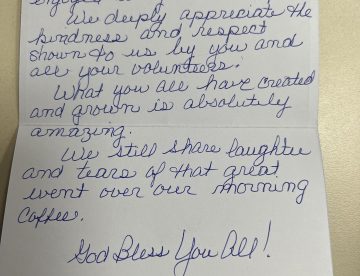 We deeply appreciate the
kindness and respect
shown to us by you and
all your volunteers.
What you all have created
and grown is absolutely
amazing.
We still share laughter
and tears of that great
event over our morning
coffee.
God Bless You All!